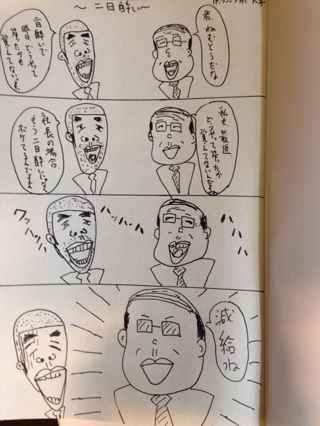 ～二日酔い～
君、ねむとうだな
二日酔いで
昨日どうやって
帰ったかも
覚えてないっす
私も最近
どうやって帰ったか
覚えてないんだよ
社長の場合
もう二日酔いじゃなく
ボケてるんですよ
ハハハ
ハッハッハ
ワッハッハ
減給ね